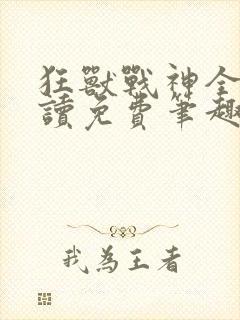 狂獸戰神全
讀免費筆趣
我為王者